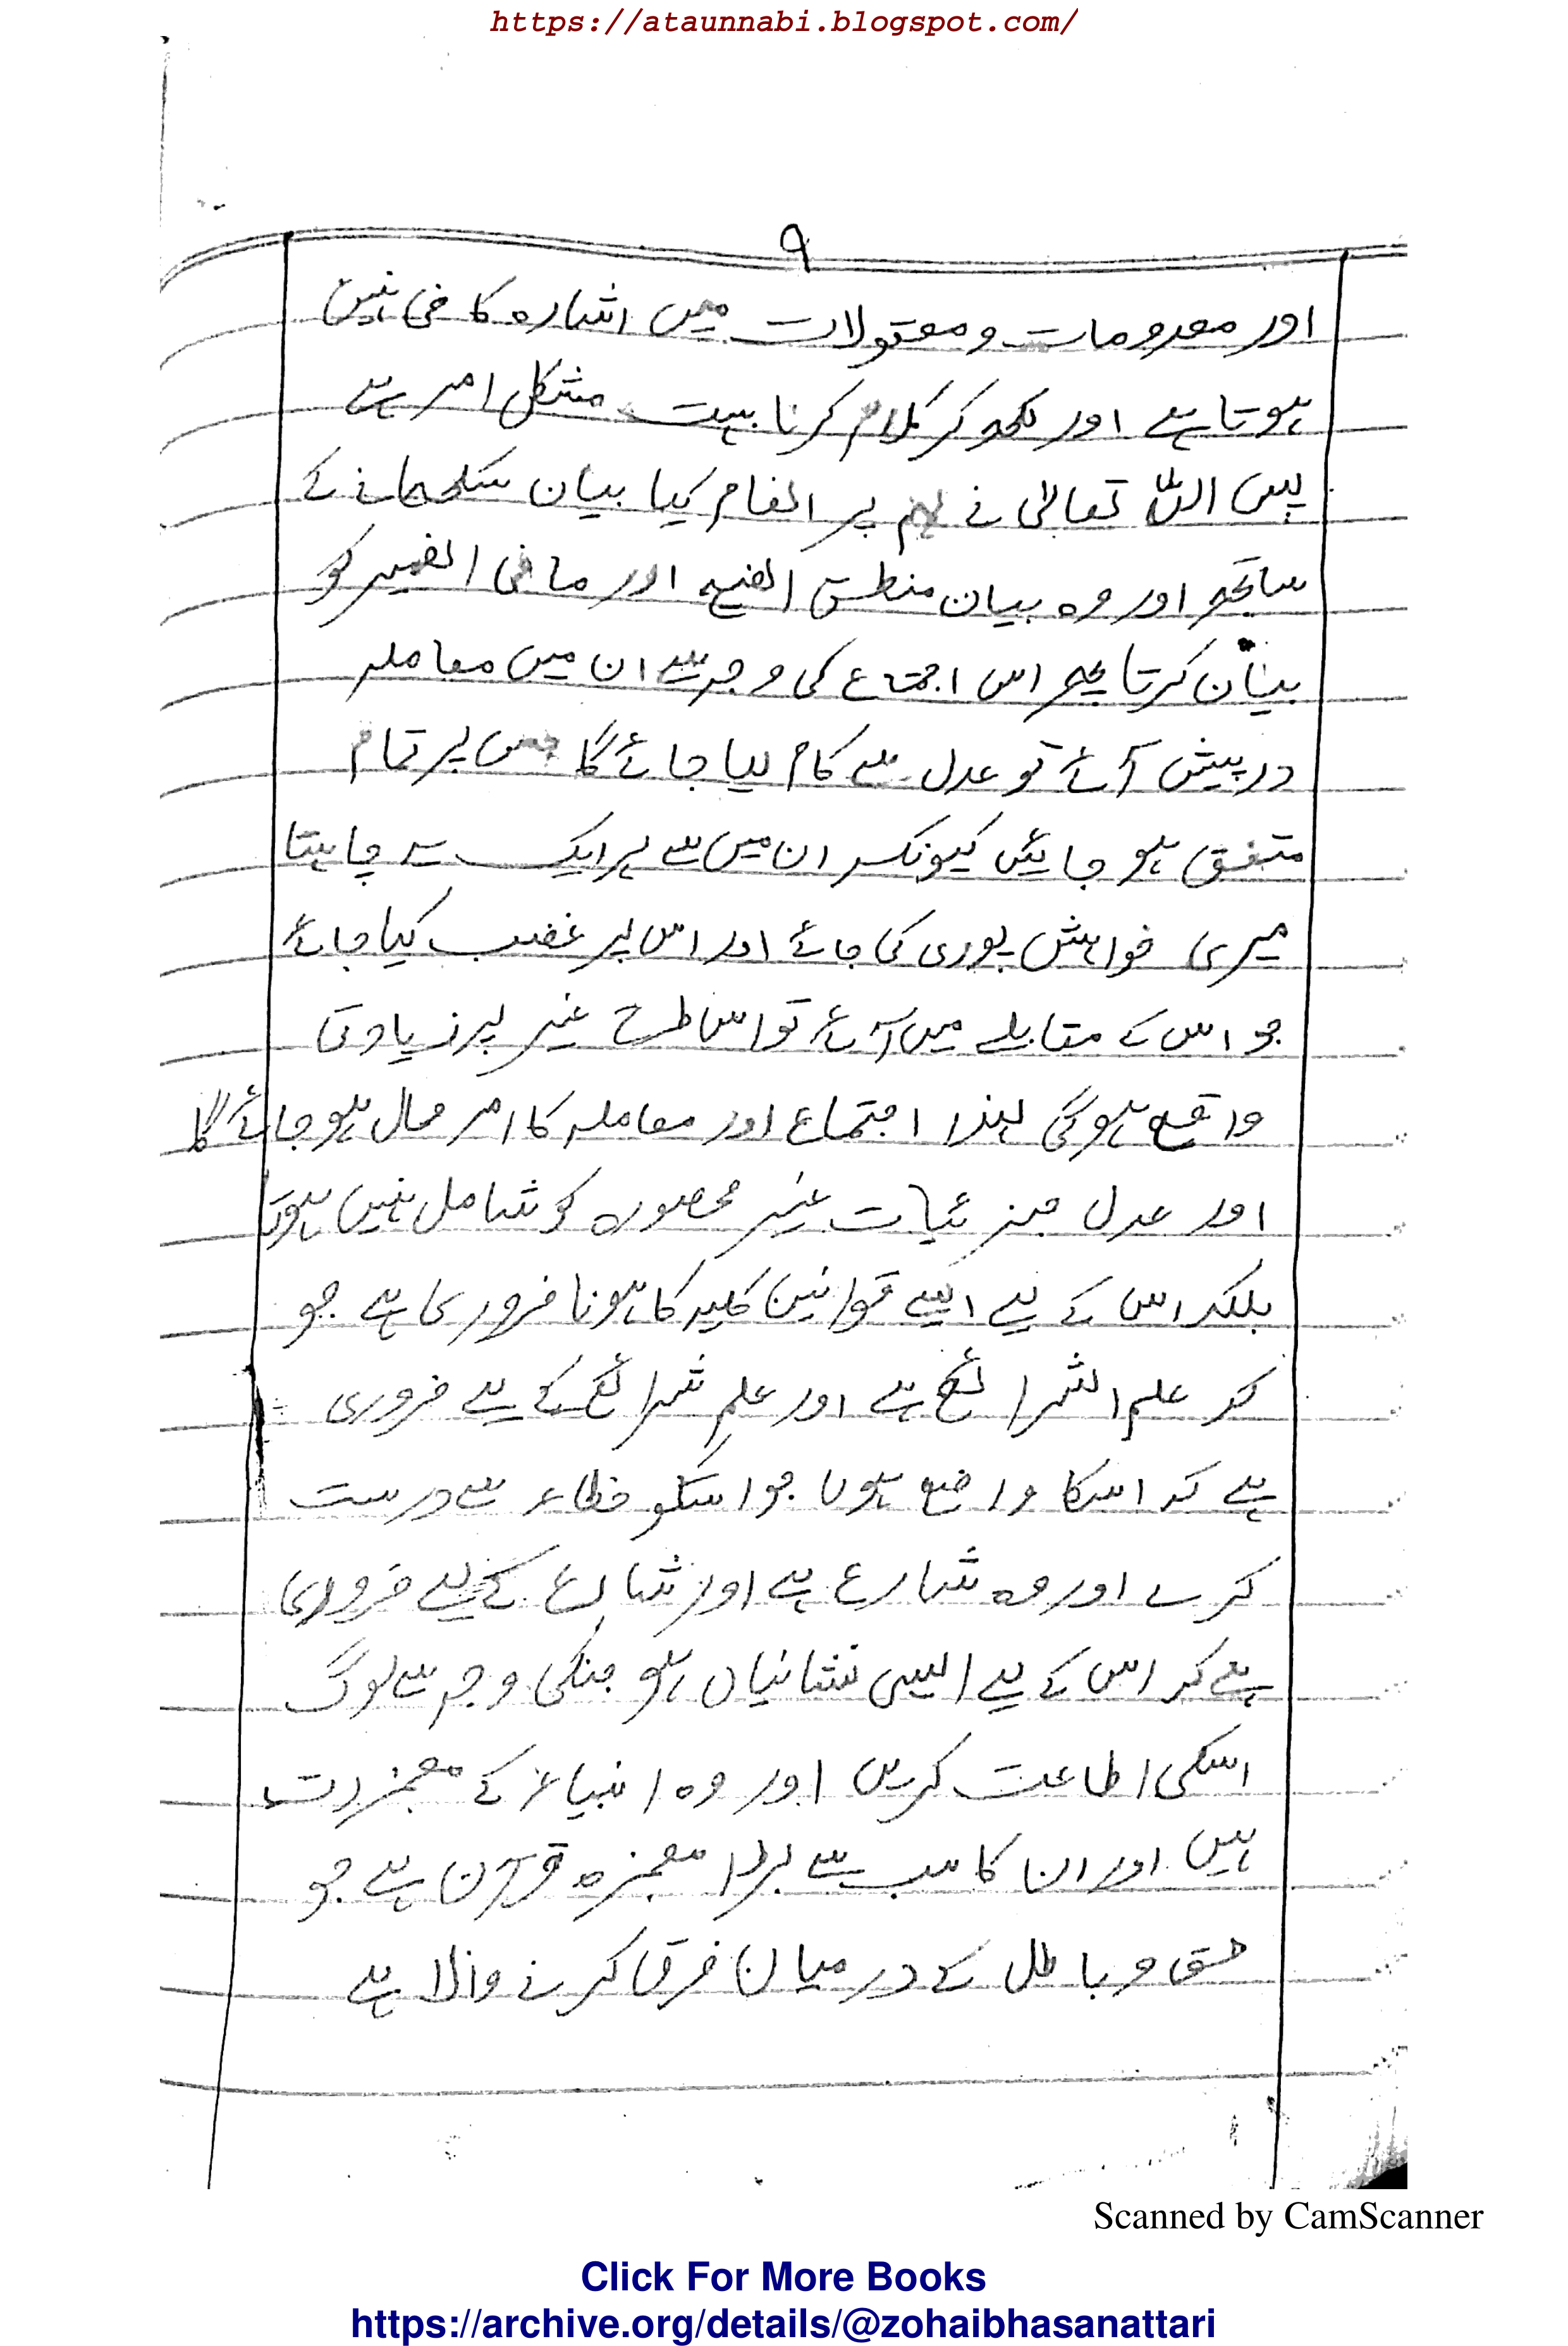 https://ataunnabi.blogspot.com/
۹
اور معدومات و معقولات میں اشارہ کافی نہیں
ہوتا ہے اور لکھ کر کلام کرنا بہت مشکل امر ہے
پس اللہ تعالیٰ نے ہم پر انعام کیا بیان سکھانے کے
ساتھ اور وہ بیان منطق الفصیح اور ما فی الضمیر کو
بیان کرتا پھر اس اجتماع کی وجہ سے ان میں معاملہ
درپیش آئے تو عدل سے کام لیا جائے گا جس پر تمام
متفق ہو جائیں کیونکہ ان میں سے ہر ایک یہ چاہتا
میری خواہش پوری کی جائے اور اس پر غضب کیا جائے
جو اس کے مقابلے میں آئے تو اس طرح غیر پر زیادتی
واقع ہو گی لہذا اجتماع اور معاملہ کا امر محال ہو جائے گا
اور عدل جزئیات غیر محصورہ کو شامل نہیں ہوتا
بلکہ اس کے لیے ایسے قوانین کلیہ کا ہونا ضروری ہے جو
کہ علم الشرائع ہے اور علمِ شرائع کے لیے ضروری
ہے کہ اسکا واضع ہوں جو اسکو خطاء سے درست
کرے اور وہ شارع ہے اور شارع کے لیے ضروری
ہے کہ اس کے لیے ایسی نشانیاں ہو جنکی وجہ سے لوگ
اسکی اطاعت کریں اور وہ انبیاء کے معجزات
ہیں اور ان کا سب سے بڑا معجزہ قرآن ہے جو
حق و باطل کے درمیان فرق کرنے والا ہے
Scanned by CamScanner
Click For More Books
https://archive.org/details/@zohaibhasanattari